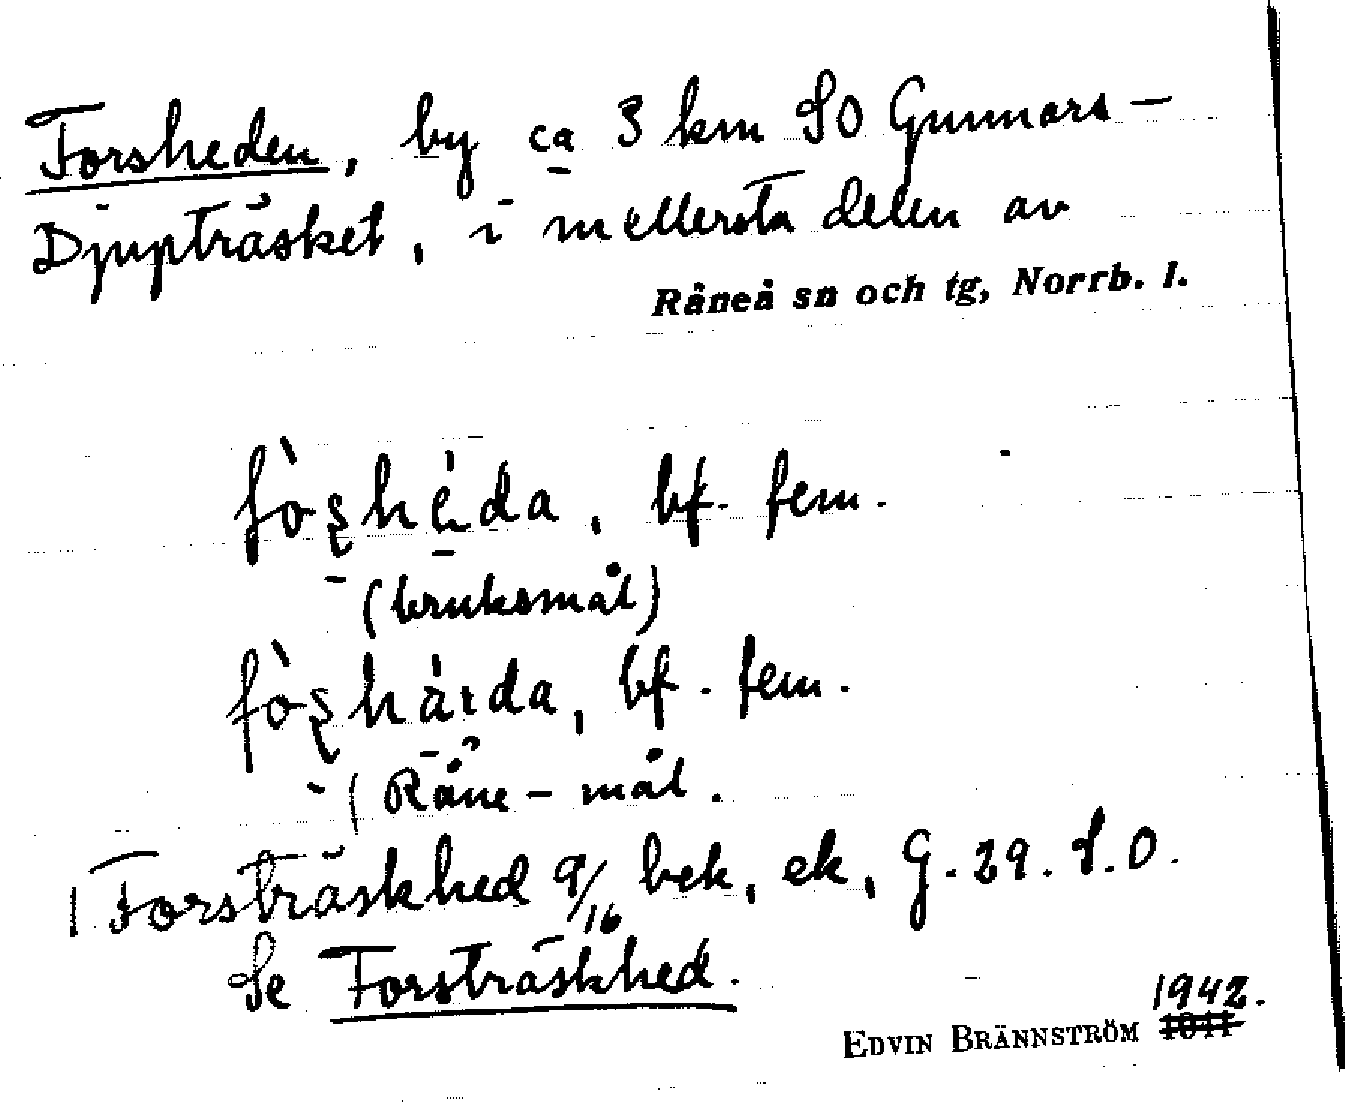 Forsheden, by ca 3 km SO Gunnars-
Djupträsket, i mellersta delen av
Råneå sn och tg, Norrb. l.
fòʂhéda, bf. fem.
(bruksmål)
fòʂháɪda, bf. fem.
(Råne-mål.
1 Forsträskhed 9/16 bek, ek, G.29.S.O.
Se Forsträskhed.
1942.
EDVIN BRÄNNSTRÖM 1941